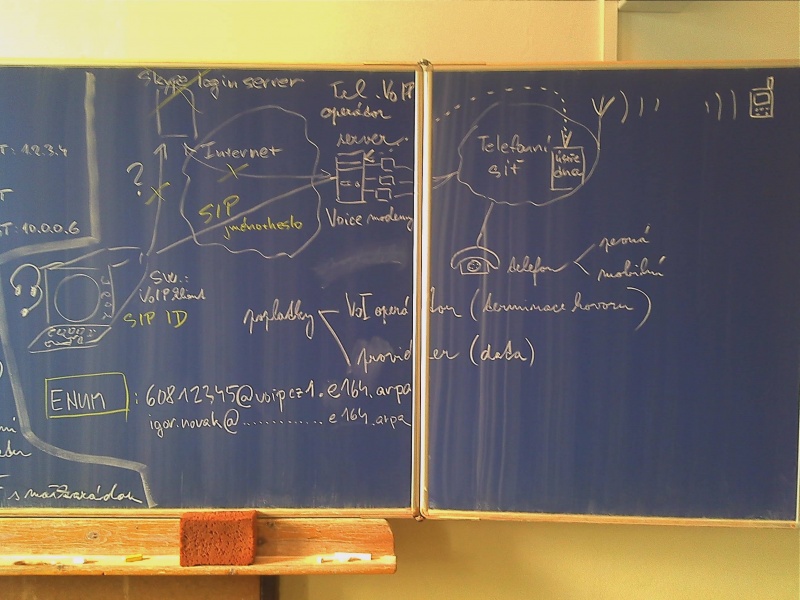 Skype login server
Tel. VoIP
operátor
server
T: 1.2.3.4
?
Internet
SIP
jméno+heslo
Voice modemy
Telefonní
síť
ústře
dna
T: 10.0.0.6
SW.:
VoIP klient
SIP ID
telefon
pevná
mobilní
poplatky
VoI operátor (terminace hovoru)
provider (data)
ENUM : 60812345@voipcz1.e164.arpa
igor.novak@............e164.arpa